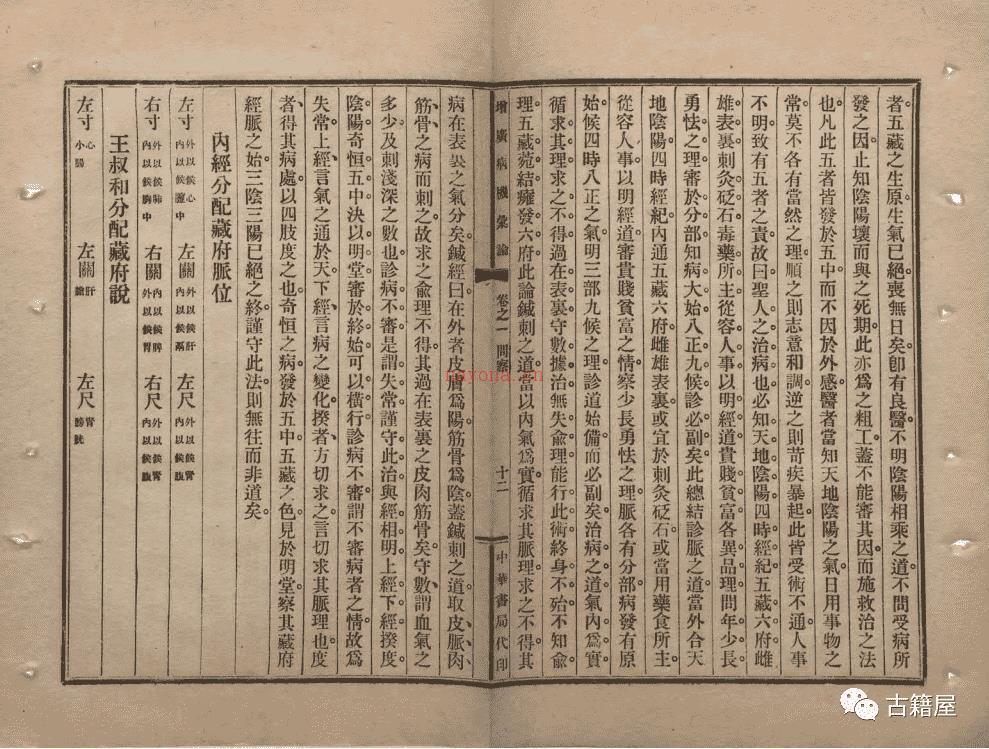 者五藏之生原生氣已絕喪無日矣卽有良醫不明陰陽相乘之道不問受病所
發之因止知陰陽壞而與之死期此亦爲之粗工蓋不能審其因而施救治之法
也凡此五者皆發於五中而不因於外感醫者當知天地陰陽之氣日用事物之
常莫不各有當然之理順之則志意和調逆之則苛疾暴起此皆受術不通人事
不明致有五者之責故曰聖人之治病也必知天地陰陽四時經紀五藏六府雌
雄表裏刺灸砭石毒藥所主從容人事以明經道貴賤貧富各異品理問年少長
勇怯之理審於分部知病大始八正九候診必副矣此總結診脈之道當外合天
地陰陽四時經紀內通五藏六府雌雄表裏或宜於刺灸砭石或當用藥食所主
從容人事以明經道審貴賤貧富之情察少長勇怯之理脈各有分部病發有原
始候四時八正之氣明三部九候之理診道始備而必副矣治病之道氣內爲實
循求其理求之不得過在表裏守數據治無失俞理能行此術終身不殆不知俞
理五藏菀結癰發六府此論鍼刺之道當以內氣爲實循求其脈理求之不得其
增廣病機彙論
卷之一 問察
十二
中華書局代印
病在表裏之氣分矣鍼經曰在外者皮膚爲陽筋骨爲陰蓋鍼刺之道取皮脈肉
筋骨之病而刺之故求之俞理不得其過在表裏之皮肉筋骨矣守數謂血氣之
多少及刺淺深之數也診病不審是謂失常謹守此治與經相明上經下經揆度
陰陽奇恒五中決以明堂審於終始可以橫行診病不審謂不審病者之情故爲
失常上經言氣之通於天下經言病之變化揆者方切求之言切求其脈理也度
者得其病處以四肢度之也奇恒之病發於五中五藏之色見於明堂察其藏府
經脈之始三陰三陽已絕之終謹守此法則無往而非道矣
內經分配藏府脈位
左寸 外以候心 內以候膻中 左關 外以候肝 內以候鬲 左尺 外以候腎 內以候腹
右寸 外以候肺 內以候胸中 右關 內以候脾 外以候胃 右尺 外以候腎 內以候腹
王叔和分配藏府說
左寸 心 小腸 左關 肝 膽 左尺 腎 膀胱
nayona.cn
古籍屋